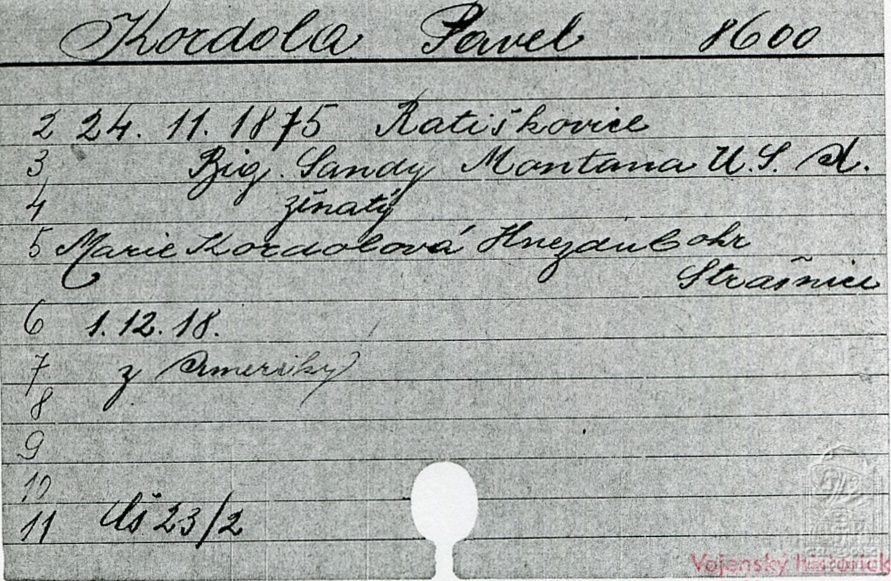 Kordola Pavel 8600
2 24. 11. 1875 Ratiškovice
3 Big. Sandy Montana U.S.A.
4 ženatý
5 Marie Kordolová Hnezdub ohr
Strašnice
6 1.12.18.
7 z Ameriky
8
9
10
11 23/2
Vojenský historick